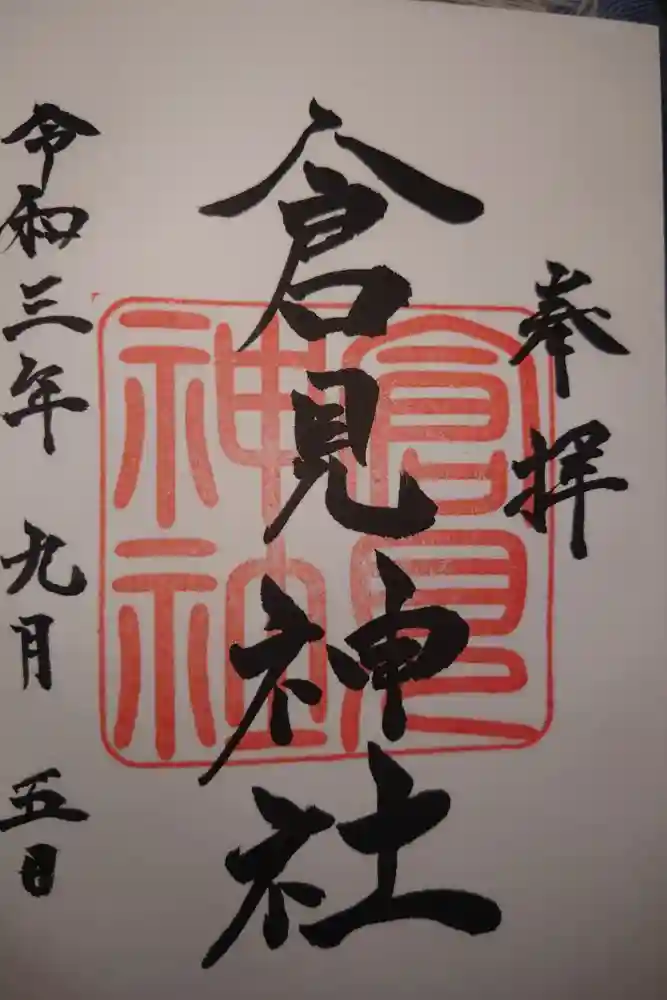 奉拝
倉見神社
倉見
神社
令和三年 九月 五日